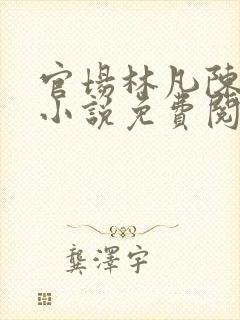 官場林凡陳
小說免費閱
龔澤宇